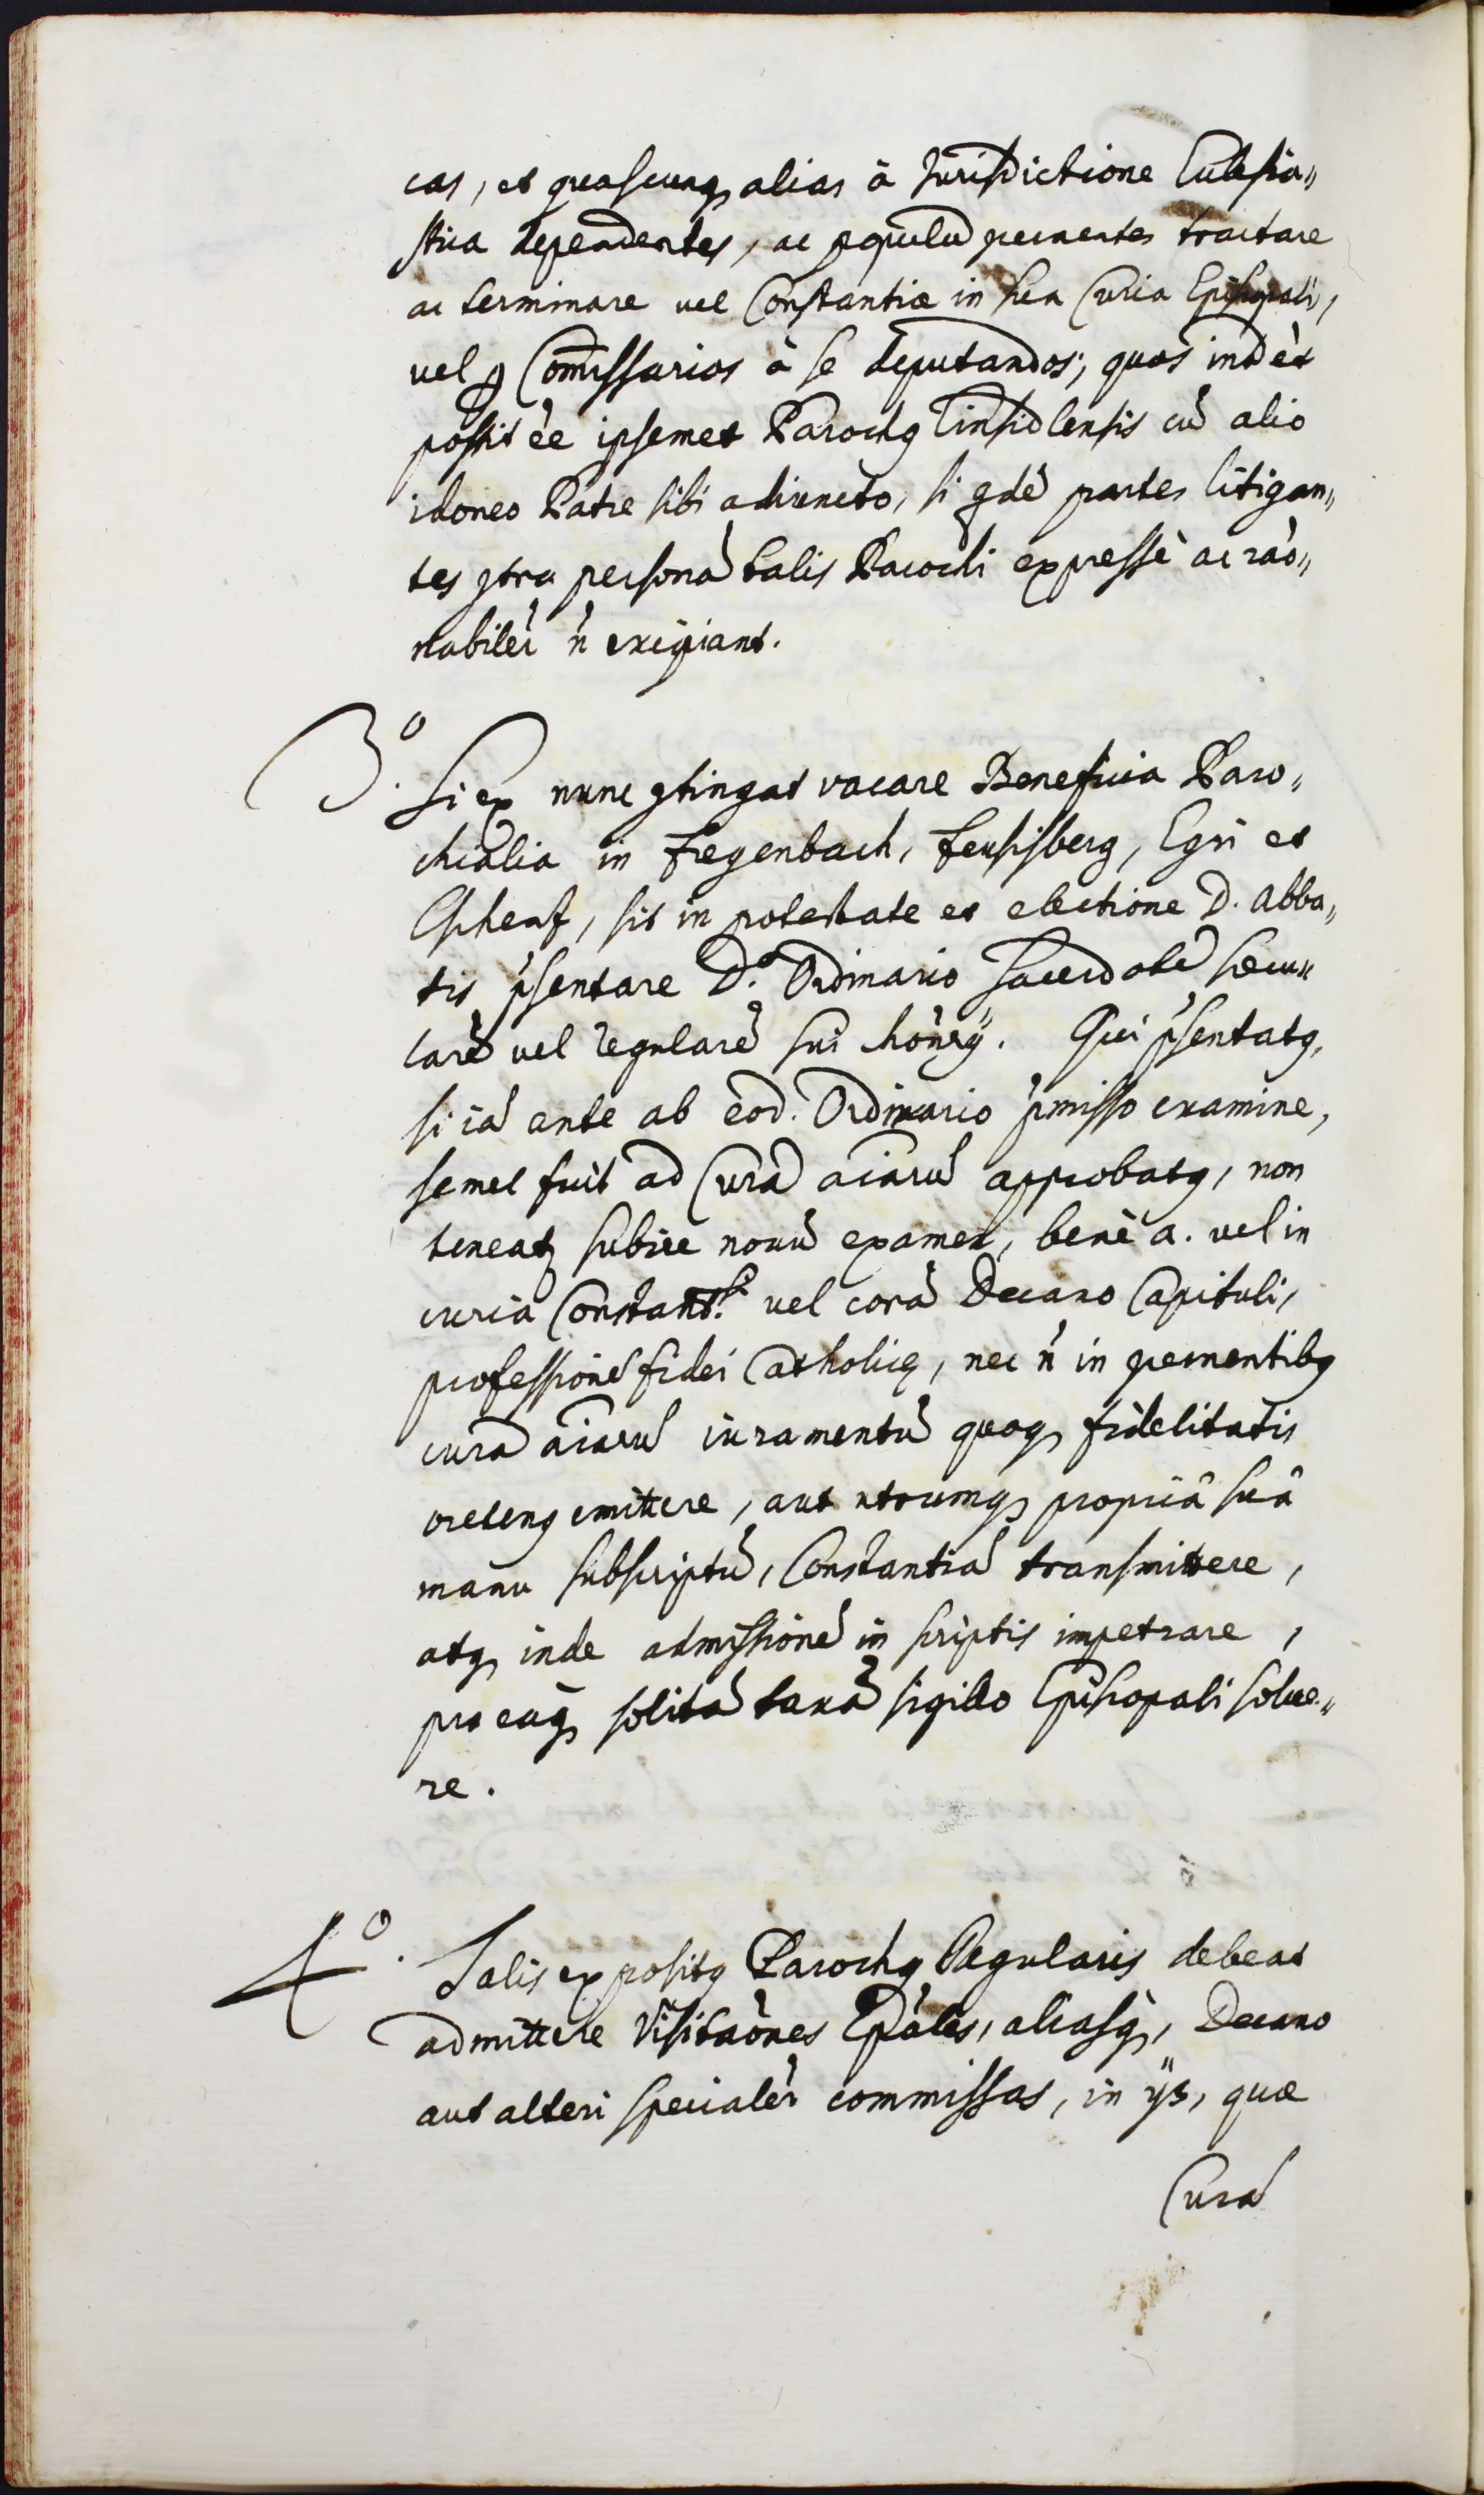 cas, et quascunq3 alias à Jurisdictione Ecclesia„
stica dependentes, ac populũ ꝑcinentes tractare
ac terminare vel Constantiæ in sua Curia Episcopali,
vel ꝑ Com̃issarios à se deputandos; quos int̃ et
possit ẽe ipsemet Parochꝯ Einsidlensis cũ alio
idoneo Patre sibi adiuncto, si qdẽ partes litigan„
tes ꝯtra personã talis Parochi expressè ac rão„
nabiler̃ ñ excipiant.
3.º Si ex nunc ꝯtingat vacare Beneficia Paro„
chialia in Freyenbach, Feusisberg, Egri et
Eschenz, sit in potestate et electione D. Abba„
tis p̃sentare D.º Ordinario Sacerdotẽ sæcu„
larẽ vel regularẽ sui Mõnrij. Qui p̃sentatꝯ,
si iã ante ab eod. Ordinario p̃misso examine,
semel fuit ad Curã aĩarũ approbatꝯ, non
teneatꝛ subire novũ examen, benè a. vel in
curia Constant.si vel corã Decano Capituli,
professionẽ fidei Catholicę, nec ñ in ꝑcinentibꝯ
curã aĩarũ iuramentũ quoq3 fidelitatis
oretenꝯ emittere, aut utrumq3 propriâ suâ
manu subscriptũ, Constantiã transmittere,
atq3 inde admissionẽ in scriptis impetrare,
pro eaq3 solitã taxã sigillo Episcopali solve„
re.
4.º Talis expositꝯ Parochꝯ Regularis debeat
admittere Visitaões Ep̃ales, aliasq3, Decano
aut alteri specialer̃ commissas, in ijs, quæ
Curã